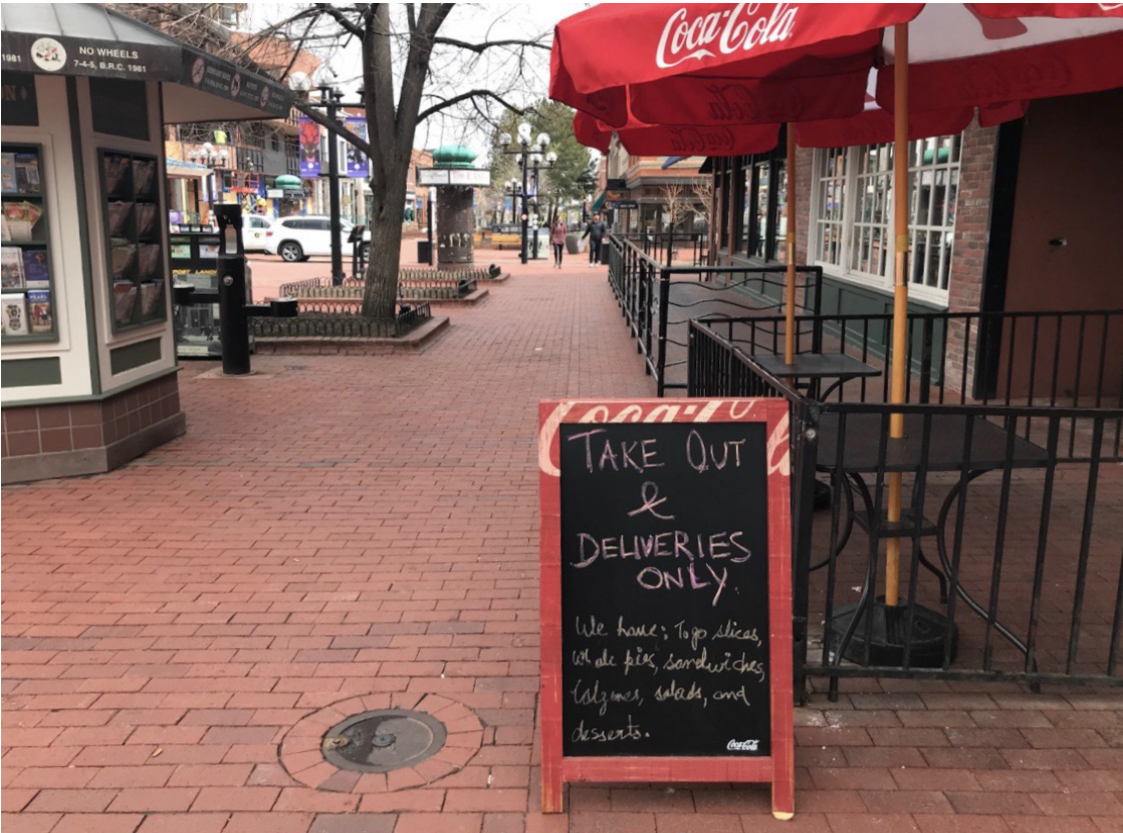 1981
NO WHEELS
7-4-5, B.R.C. 1981
Coca-Cola
Coca-Cola
TAKE OUT
&
DELIVERIES
ONLY
We have: To go slices,
Whole pies, sandwiches,
Calzones, salads, and
desserts.
Coca-Cola